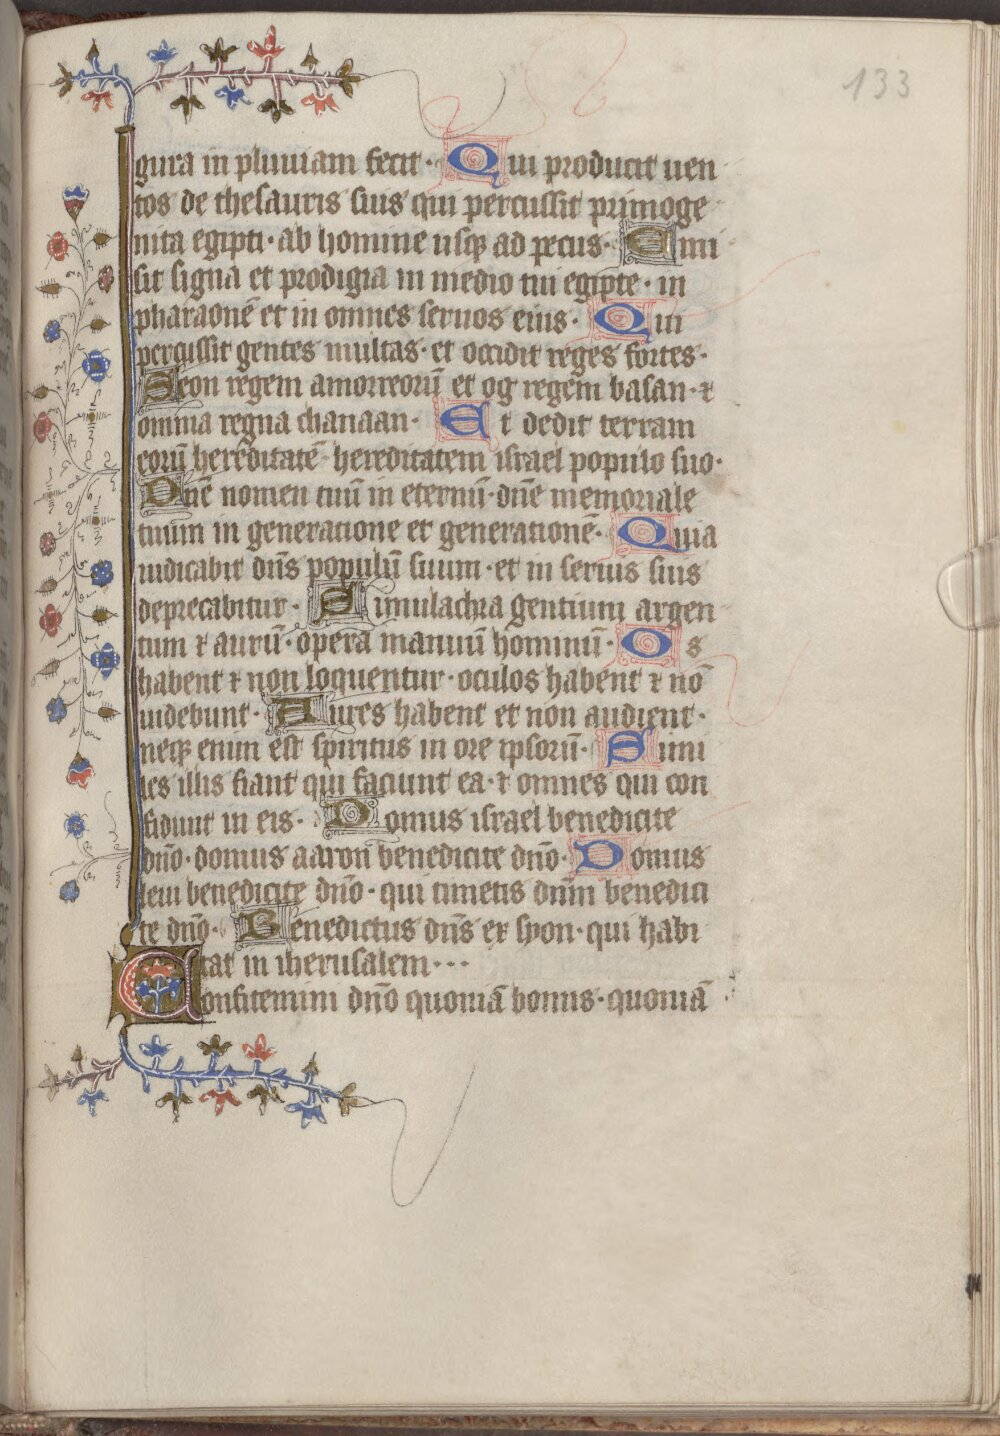 133
gura in pluuiam fecit· Qui producit uen
tos de thesauris suis qui percussit primoge
nita egipti· ab homine usqꝫ ad pecus· Emi
sit signa et prodigia in medio tui egipte· in
pharaonē et in omnes seruos eius· Qui
percussit gentes multas· et occidit reges fortes·
Seon regem amorreorū et og regem basan· ⁊
omnia regna chanaan· Et dedit terram
eorū hereditatē hereditatem israel populo suo·
Dn̄e nomen tuū in eternū· dn̄e memoriale
tuum in generatione et generatione· Quia
iudicabit dn̄s populū suum· et in seruis suis
deprecabitur· Simulachra gentium argen
tum ⁊ aurū· opera manuū hominū· Os
habent ⁊ non loquentur· oculos habent ⁊ nō
uidebunt· Aures habent et non audient·
neqꝫ enim est spiritus in ore ipsorū· Simi
les illis fiant qui faciunt ea· ⁊ omnes qui con
fidunt in eis· Domus israel benedicite
dn̄o· domus aaron benedicite dn̄o· Domus
leui benedicite dn̄o· qui timetis dn̄m benedici
te dn̄o· Benedictus dn̄s ex syon· qui habi
tat in iherusalem···
Confitemini dn̄o quoniā bonus· quoniā